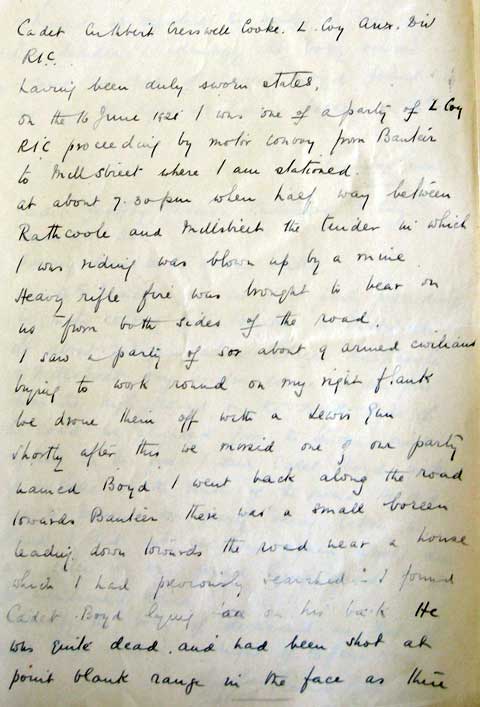 Cadet Cuthbert Cresswell Cooke. L. Coy Aux. Div
RIC.
having been duly sworn states.
on the 16 June 1921 I was one of a party of L Coy
RIC proceeding by motor convoy from Banteer
to Millstreet where I am stationed.
at about 7.30 pm when half way between
Rathcoole and Millstreet the tender in which
I was riding was blown up by a mine
Heavy rifle fire was brought to bear on
us from both sides of the road.
I saw a party of 8 or about 9 armed civilians
trying to work round on my right flank
we drove them off with a Lewis Gun
Shortly after this we missed one of our party
named Boyd I went back along the road
towards Banteer there was a small boreen
leading down towards the road near a house
which I had previously searched. I found
Cadet Boyd lying on his back He
was quite dead. and had been shot at
point blank range in the face as there